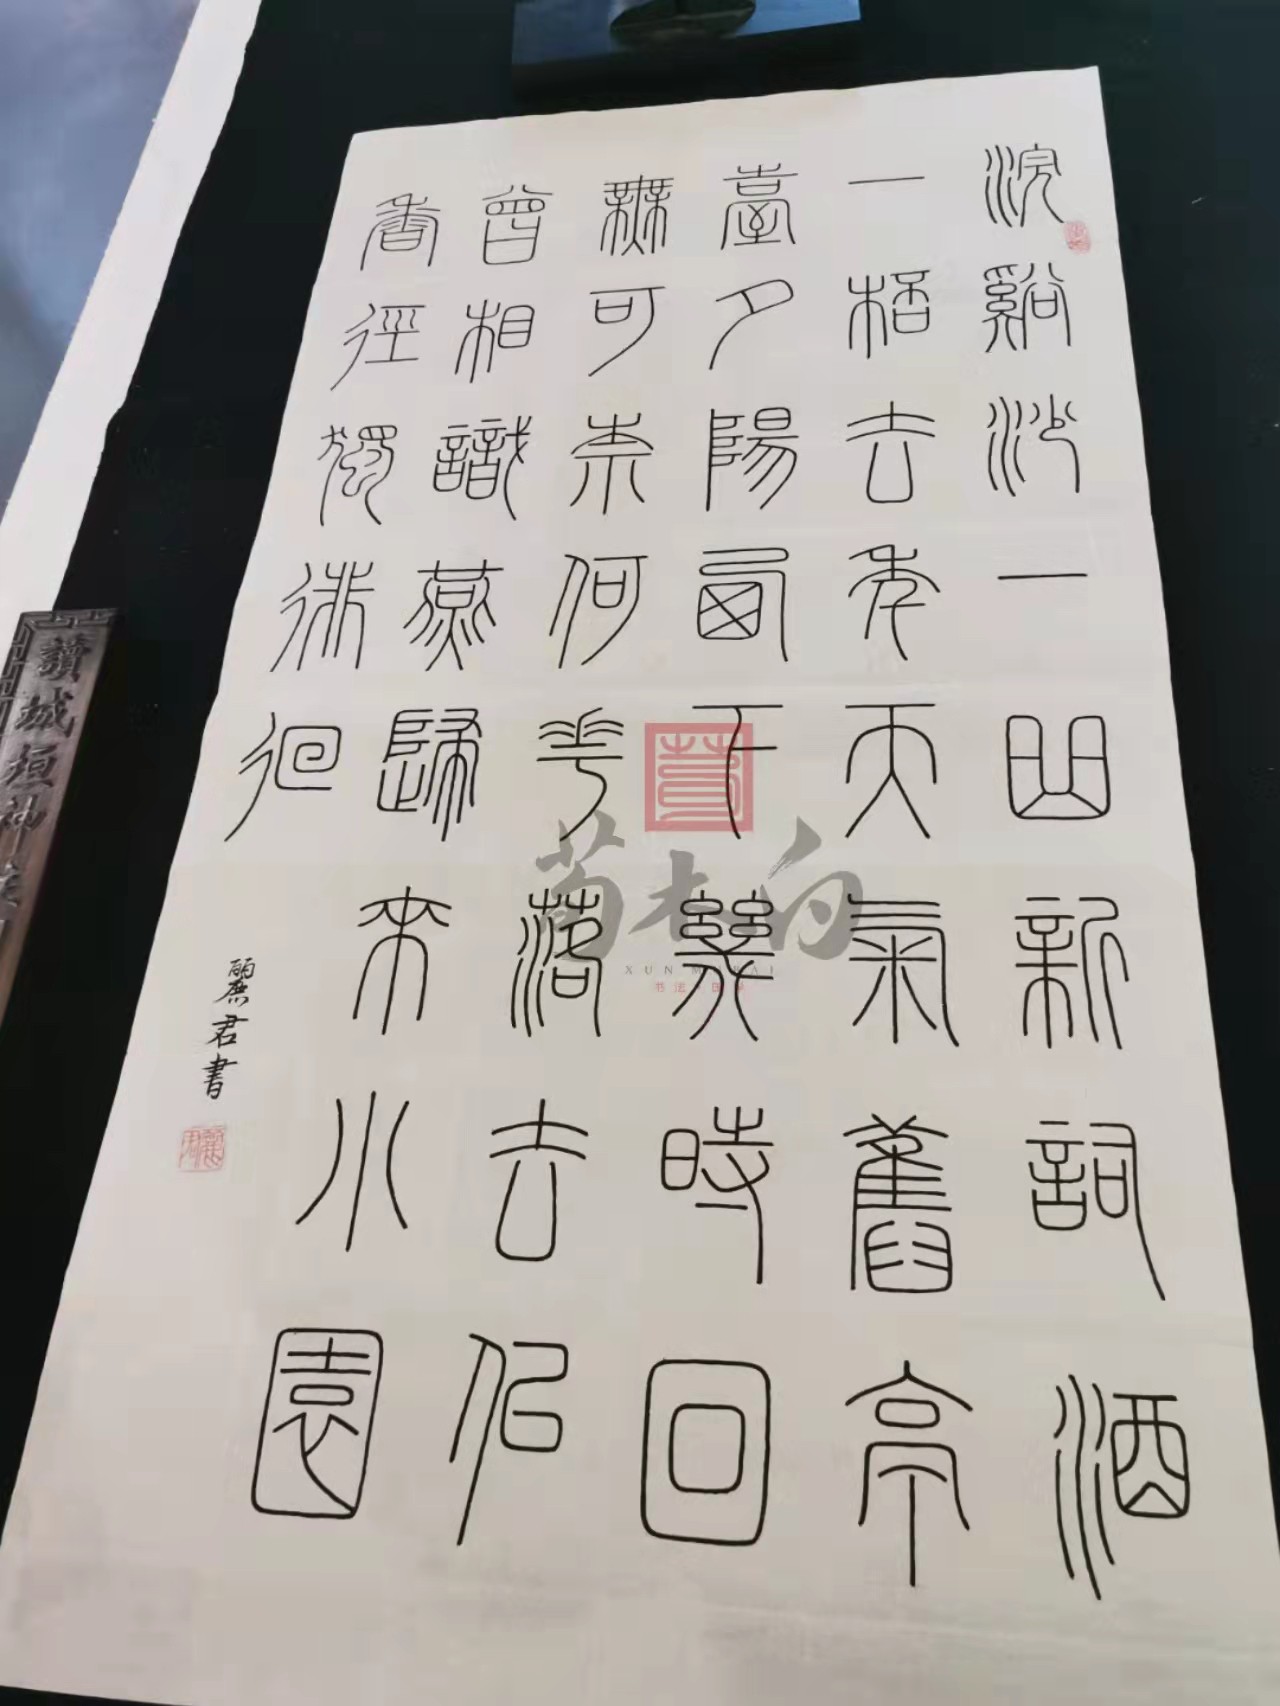 浣谿沙一曲新詞酒
一桮去年天氣舊亭
臺夕陽西下幾時回
無可奈何花落去侣
曾相識燕歸來小園
香徑獨徘徊
麗君書
荀木白
XUN MU BAI
讀城垣神